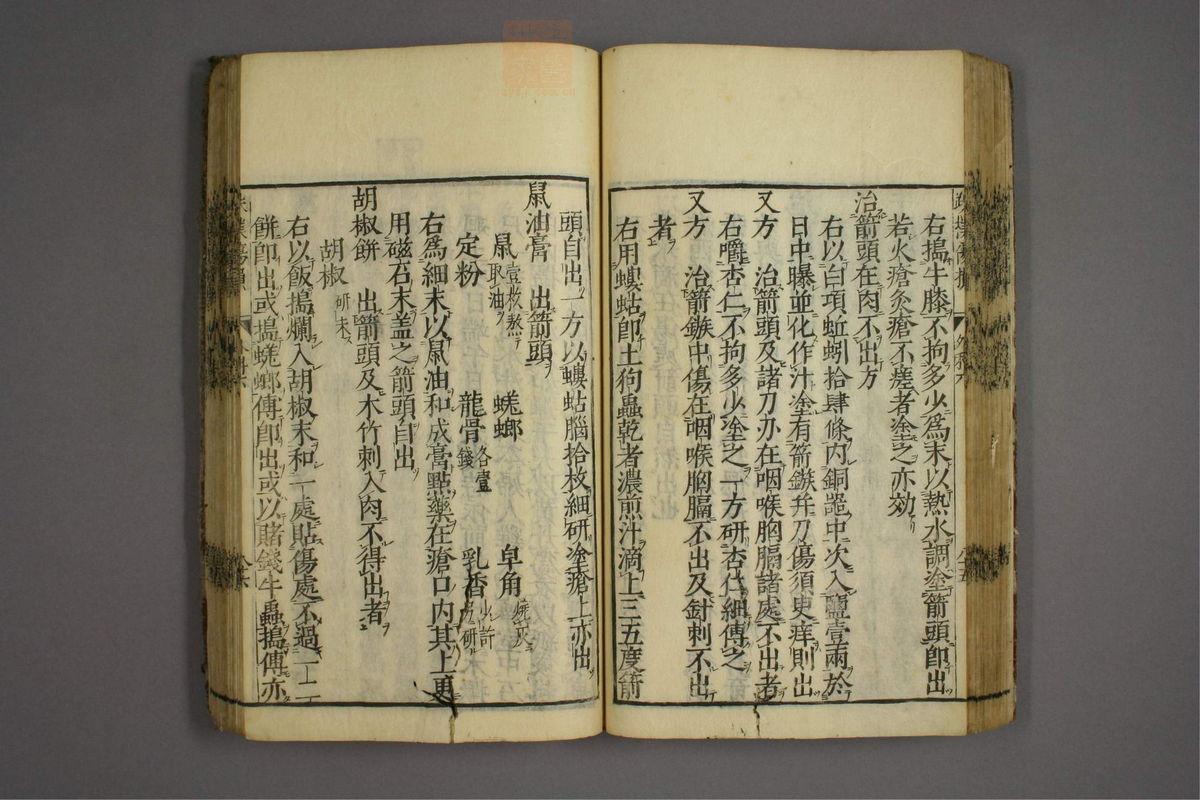 右搗牛膝不拘多少為末以熱水調塗箭頭即出
若火瘡灸瘡不瘥者塗之亦効
治箭頭在肉不出方
右以白項蚯蚓拾肆條内銅噐中次入鹽壹兩於
日中曝並化作汁塗有箭鏃并刀傷須更痒則出
又方　治箭頭及諸刀刅在咽喉胸膈諸處不出者
右嚼杏仁不拘多少塗之一方研杏仁細傅之
又方　治箭鏃中傷在咽喉胸膈不出及針刺不出
者
右用螻蛄即土狗蟲乾者濃煎汁滴上三五度箭
頭自出一方以螻蛄腦拾枚細研塗瘡上亦出
鼠油膏　出箭頭
鼠壹枚熬取油　蜣螂　皁角燒灰
定粉　龍骨各壹錢　乳香少許研
右為細末以鼠油和成膏點藥在瘡口内其上更
用磁石末盖之箭頭自出
胡椒餅　出箭頭及木竹刺入肉不得出者
胡椒研末
右以飯搗爛入胡椒末和一處貼傷處不過一上
餅即出或搗蜣螂傅即出或以賭錢牛蟲搗傅亦